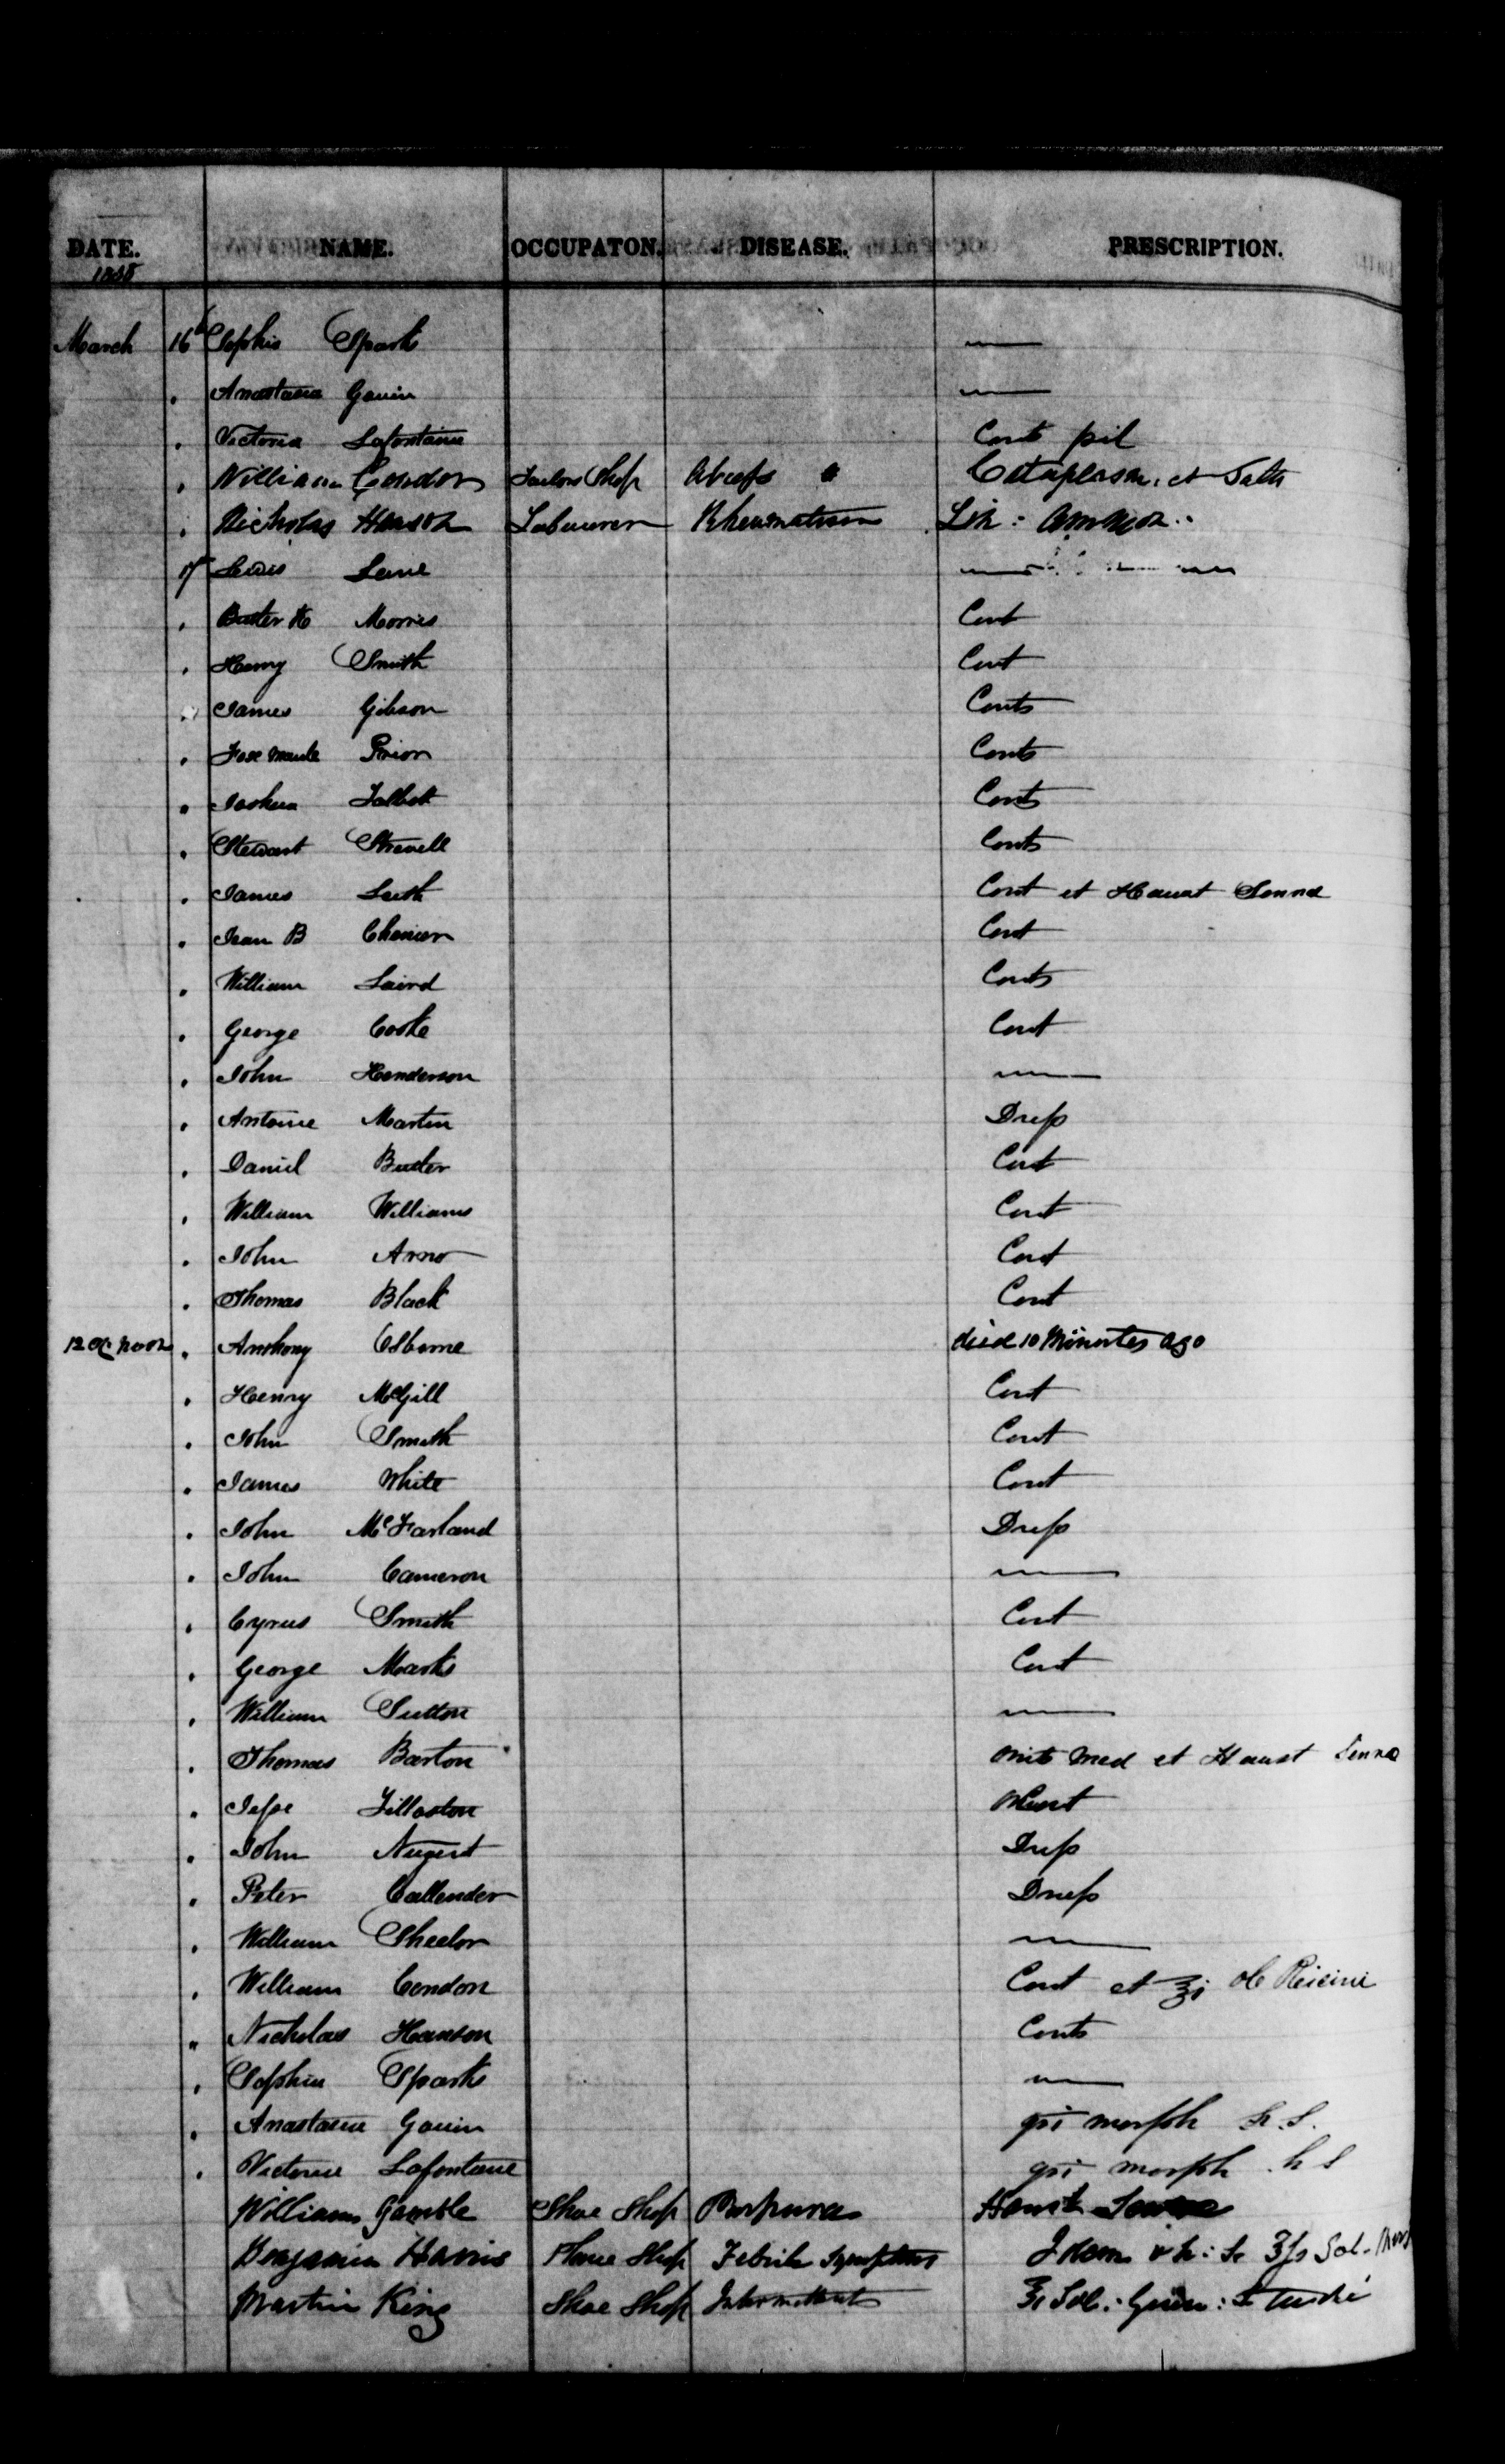 DATE. NAME. OCCUPATON. DISEASE. PRESCRIPTION.
March 16 Sophia Sparks
" Anastasia Gouin
" Victoria Lafontaine Cont pil
" William Condon Tailors Shop Abcefs Cataplasm. et Salts
" Nicholas Hanson Labourer Rheumatism Lin: Ammon:
17 Lewis Lane
" Morris Cont
" Henry Smith Cont
" James Gibson Cont
" Fox Maule Prior Cont
" Joshua Talbot Cont
" Stewart Strevell Cont
" James Leith Cont et Haust Senna
" Jean B Chenier Cont
" William Laird Cont
" George Cooke Cont
" John Henderson
" Antoine Martin Drefs
" Daniel Butler Cont
" William Williams Cont
" John Arno Cont
" Thomas Black Cont
12 noon " Anthony Osborne died 10 Minutes ago
" Henry McGill Cont
" John Smith Cont
" James White Cont
" John McFarland Drefs
" John Cameron
" Cyrus Smith Cont
" George Marks Cont
" William Sutton
" Thomas Barton omit med et Haust Senna
" Jefse Tillaston
" John Nugent Drefs
" Peter Callender Drefs
" William Sheeler
" William Condon Cont et ʒi Ol Ricini
" Nicholas Hanson Cont
" Sophia Sparks
" Anastasia Gouin gri morph h.s.
" Victoria Lafontaine gri morph h s
William Gamble Shoe Shop Purpura Haust Senna
Benjamin Harris Shoe Shop Febrile Symptoms Idem
Martin King Shoe Shop Intermittent